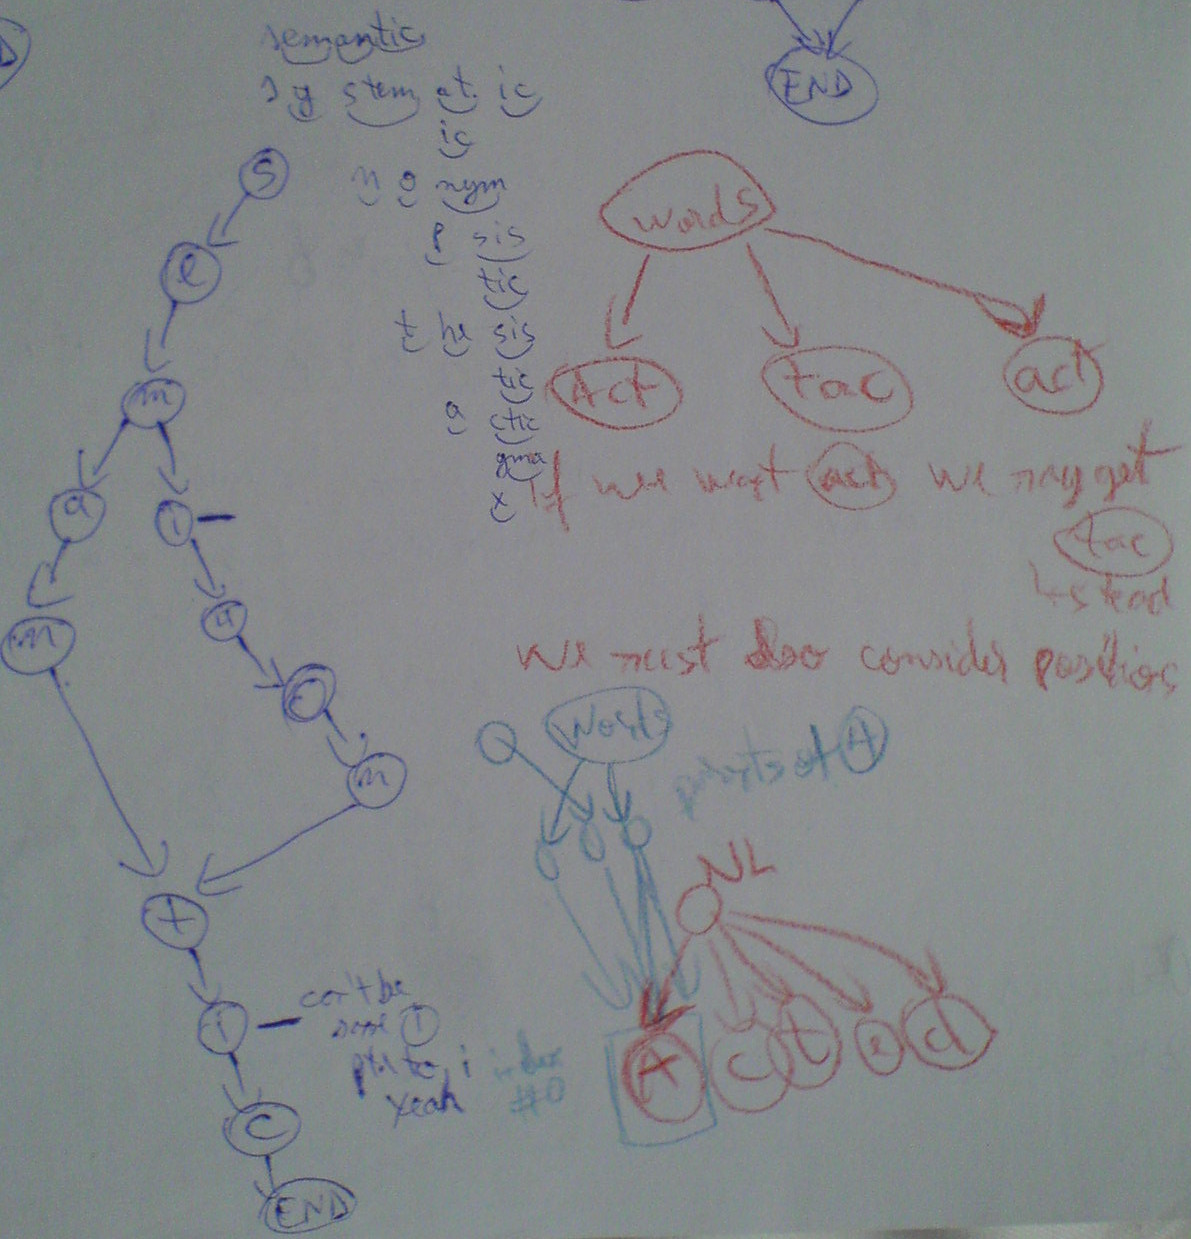 semantic
sy stem at ic
ic
n o nym
p sis
tic
t he sis
tic
a ctic
gma
x
END
S
e
m
a
i
m
a
o
n
t
i
can't be
same i
ptr to i
yeah
c
END
words
Act
tac
act
If we want act we may get
tac
instead
We must also consider positions
Words
points of A
NL
A
c
t
e
d
index
#0